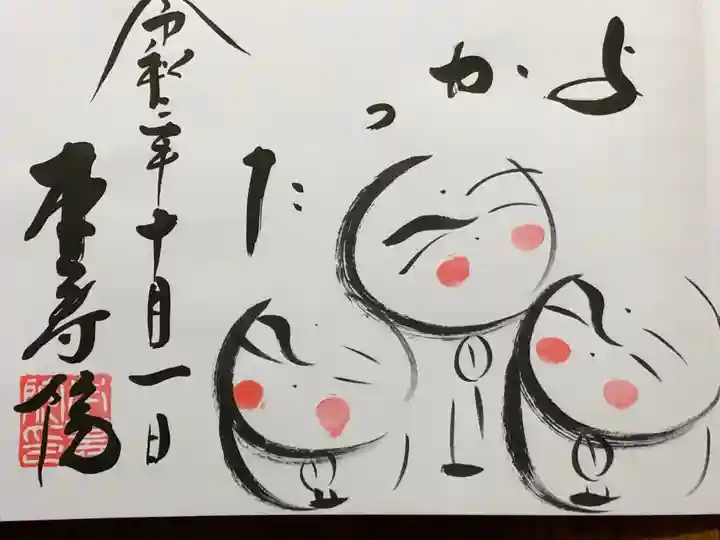 よかった
令和二年十月一日
李寿院